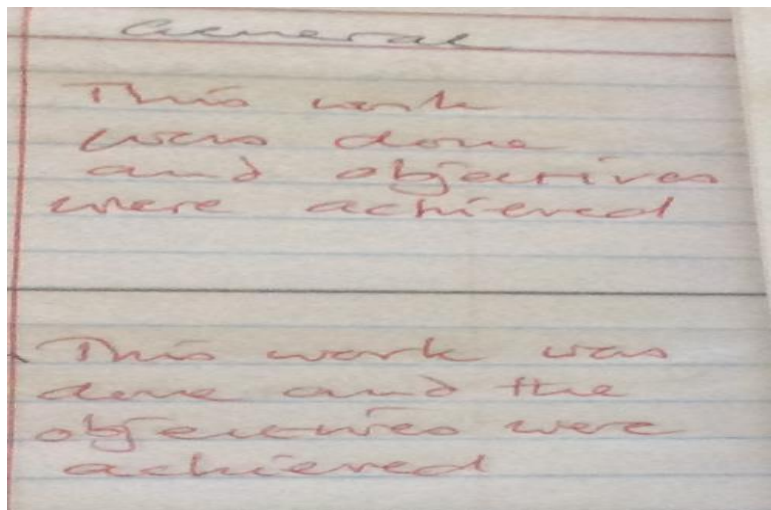 General
This work
was done
and objectives
were achieved
This work was
done and the
objectives were
achieved